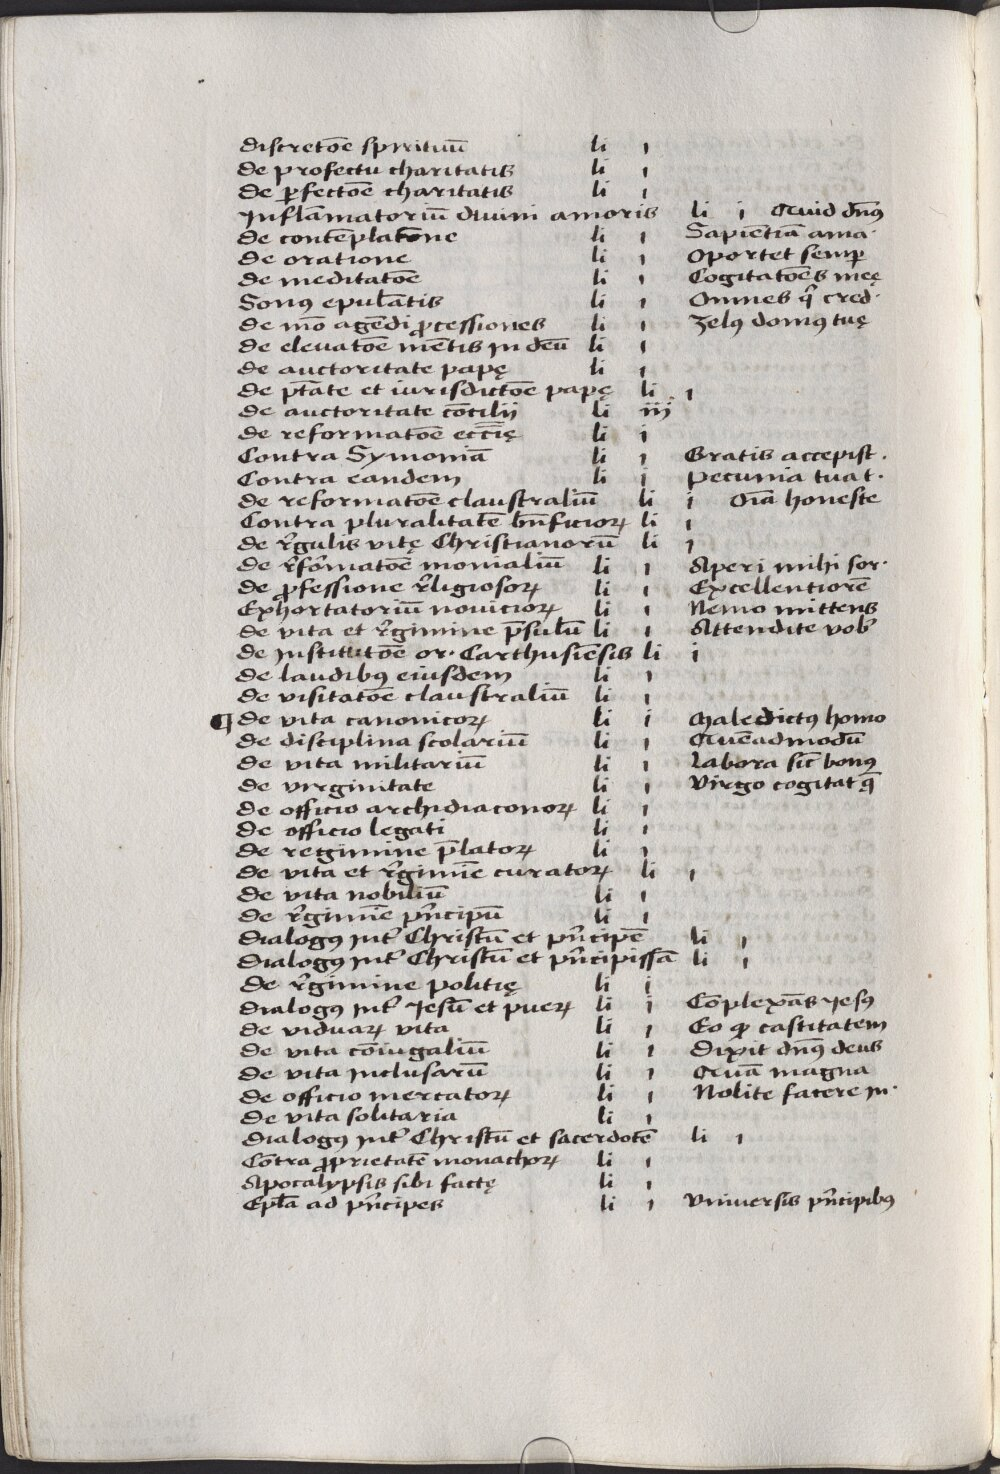 discretōe spirituū li i
de profectu charitatis li i
de ꝑfectōe charitatis li i
Inflāmatoriū diuini amoris li i Quid dn̄s
de contēplatōne li i Sapientiā ama·
de oratione li i Oportet semꝑ
de meditatōe li i Cogitatōes meę
Sonꝰ epulātis li i Omnes q̄ cred·
de mō agēdi ꝓcessiones li i Zelꝰ domꝰ tuę
de eleuatōe mētis in deū li i
de auctoritate papę li i
de ptāte et iurisdictōe papę li i
de auctoritate cōcilij li iij
de reformatōe eccl̄ię li i
Contra Symoniā li i Gratis accepist·
Contra eandem li i Pecunia tua t·
de reformatōe claustraliū li i Oīa honeste
Contra pluralitatē bn̄ficioꝝ li i
de r̄gulis vitę Christianorū li i
de r̄fōrmatōe monialiū li i Aperi mihi sor·
de ꝓfessione r̄ligiosoꝝ li i Excellentiorē
Exhortatoriū nouicioꝝ li i Nemo mittens
de vita et r̄gimine p̄sulū li i Attendite vob̄
de institutōe or· Carthusiēsis li i
de laudibꝰ eiusdem li i
de visitatōe claustraliū li i
¶ de vita canonicoꝝ li i Maledictꝰ homo
de disciplina scolariū li i Quēadmodū
de vita militariū li i Labora sīc bonꝰ
de virginitate li i Virgo cogitat q̄
de officio archidiaconoꝝ li i
de officio legati li i
de regimine p̄latoꝝ li i
de vita et r̄gimīe curatoꝝ li i
de vita nobiliū li i
de r̄gimīe pn̄cipū li i
Dialogꝰ int̄ Christū et pn̄cipē li i
Dialogꝰ int̄ Christū et pn̄cipissā li i
de r̄gimine politię li i
Dialogꝰ int̄ Iesū et pueꝝ li i Cōplexās Iesꝰ
de viduaꝝ vita li i Eo ꝙ castitatem
de vita cōiugaliū li i Dixit dn̄s deus
de vita inclusarū li i Quā magna
de officio mercatoꝝ li i Nolite facere in·
de vita solitaria li i
Dialogꝰ int̄ Christū et sacerdotē li i
Cōtra ꝓprietatē monachoꝝ li i
Apocalypsis sibi factę li i
Epl̄a ad pn̄cipes li i Vniuersis pn̄cipibꝰ